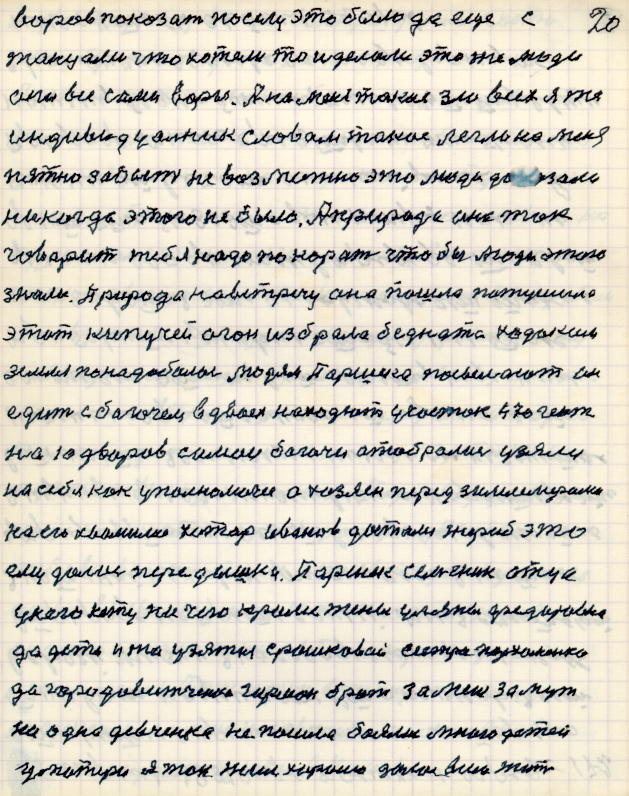 воров показат поселу это было да еще с 20
танцали что хотели то и делали эта же люди
они все сами воры. А на мене такое зло всех я же
индивидуалник словам такое легло на меня
пятно забыт не возможно это люди доказали
никогда этого не было. А природа она так
говарит тебя надо покорат что бы люди этого
знали. Природа навстречу она пошла потушила
этот кипучей огон избрала бедната ходоком
земля понадобилас людям Паршека посылают он
едит с богачем вдвоех находют участок 470 гект
на 10 дворов самои богачи отобралис узяли
на себя как уполномочие а хозяен перед землемером
на его хвамилию хутар Иванов достали жереб это
ему долос передышка. Паршек семеник отца
у кого хату ни чего кроме жены уляны федоровны
да дети и та узятая срошковай сестра пархоменко
да городовитченко гирион брат за меш замуж
ни одна девченка не пошла боялис много детей
у потери я так жил хорошо